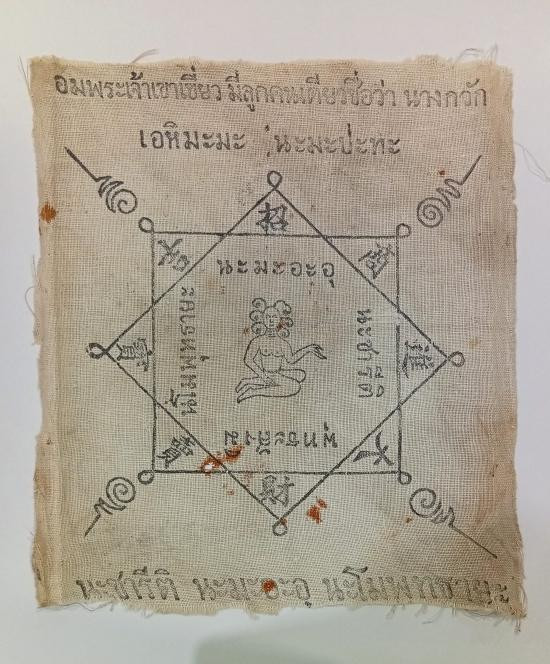 อมพระเจ้าเขาเขียว มีลูกคนเดียวชื่อว่า นางกวัก
เอหิมะมะ นะมะปะทะ
招
นะมะอะอุ
นะชารีติ
พุทธะสังมิ
นโมพุทธายะ
財
นะชารีติ นะมะอะอุ นะโมพุทธายะ